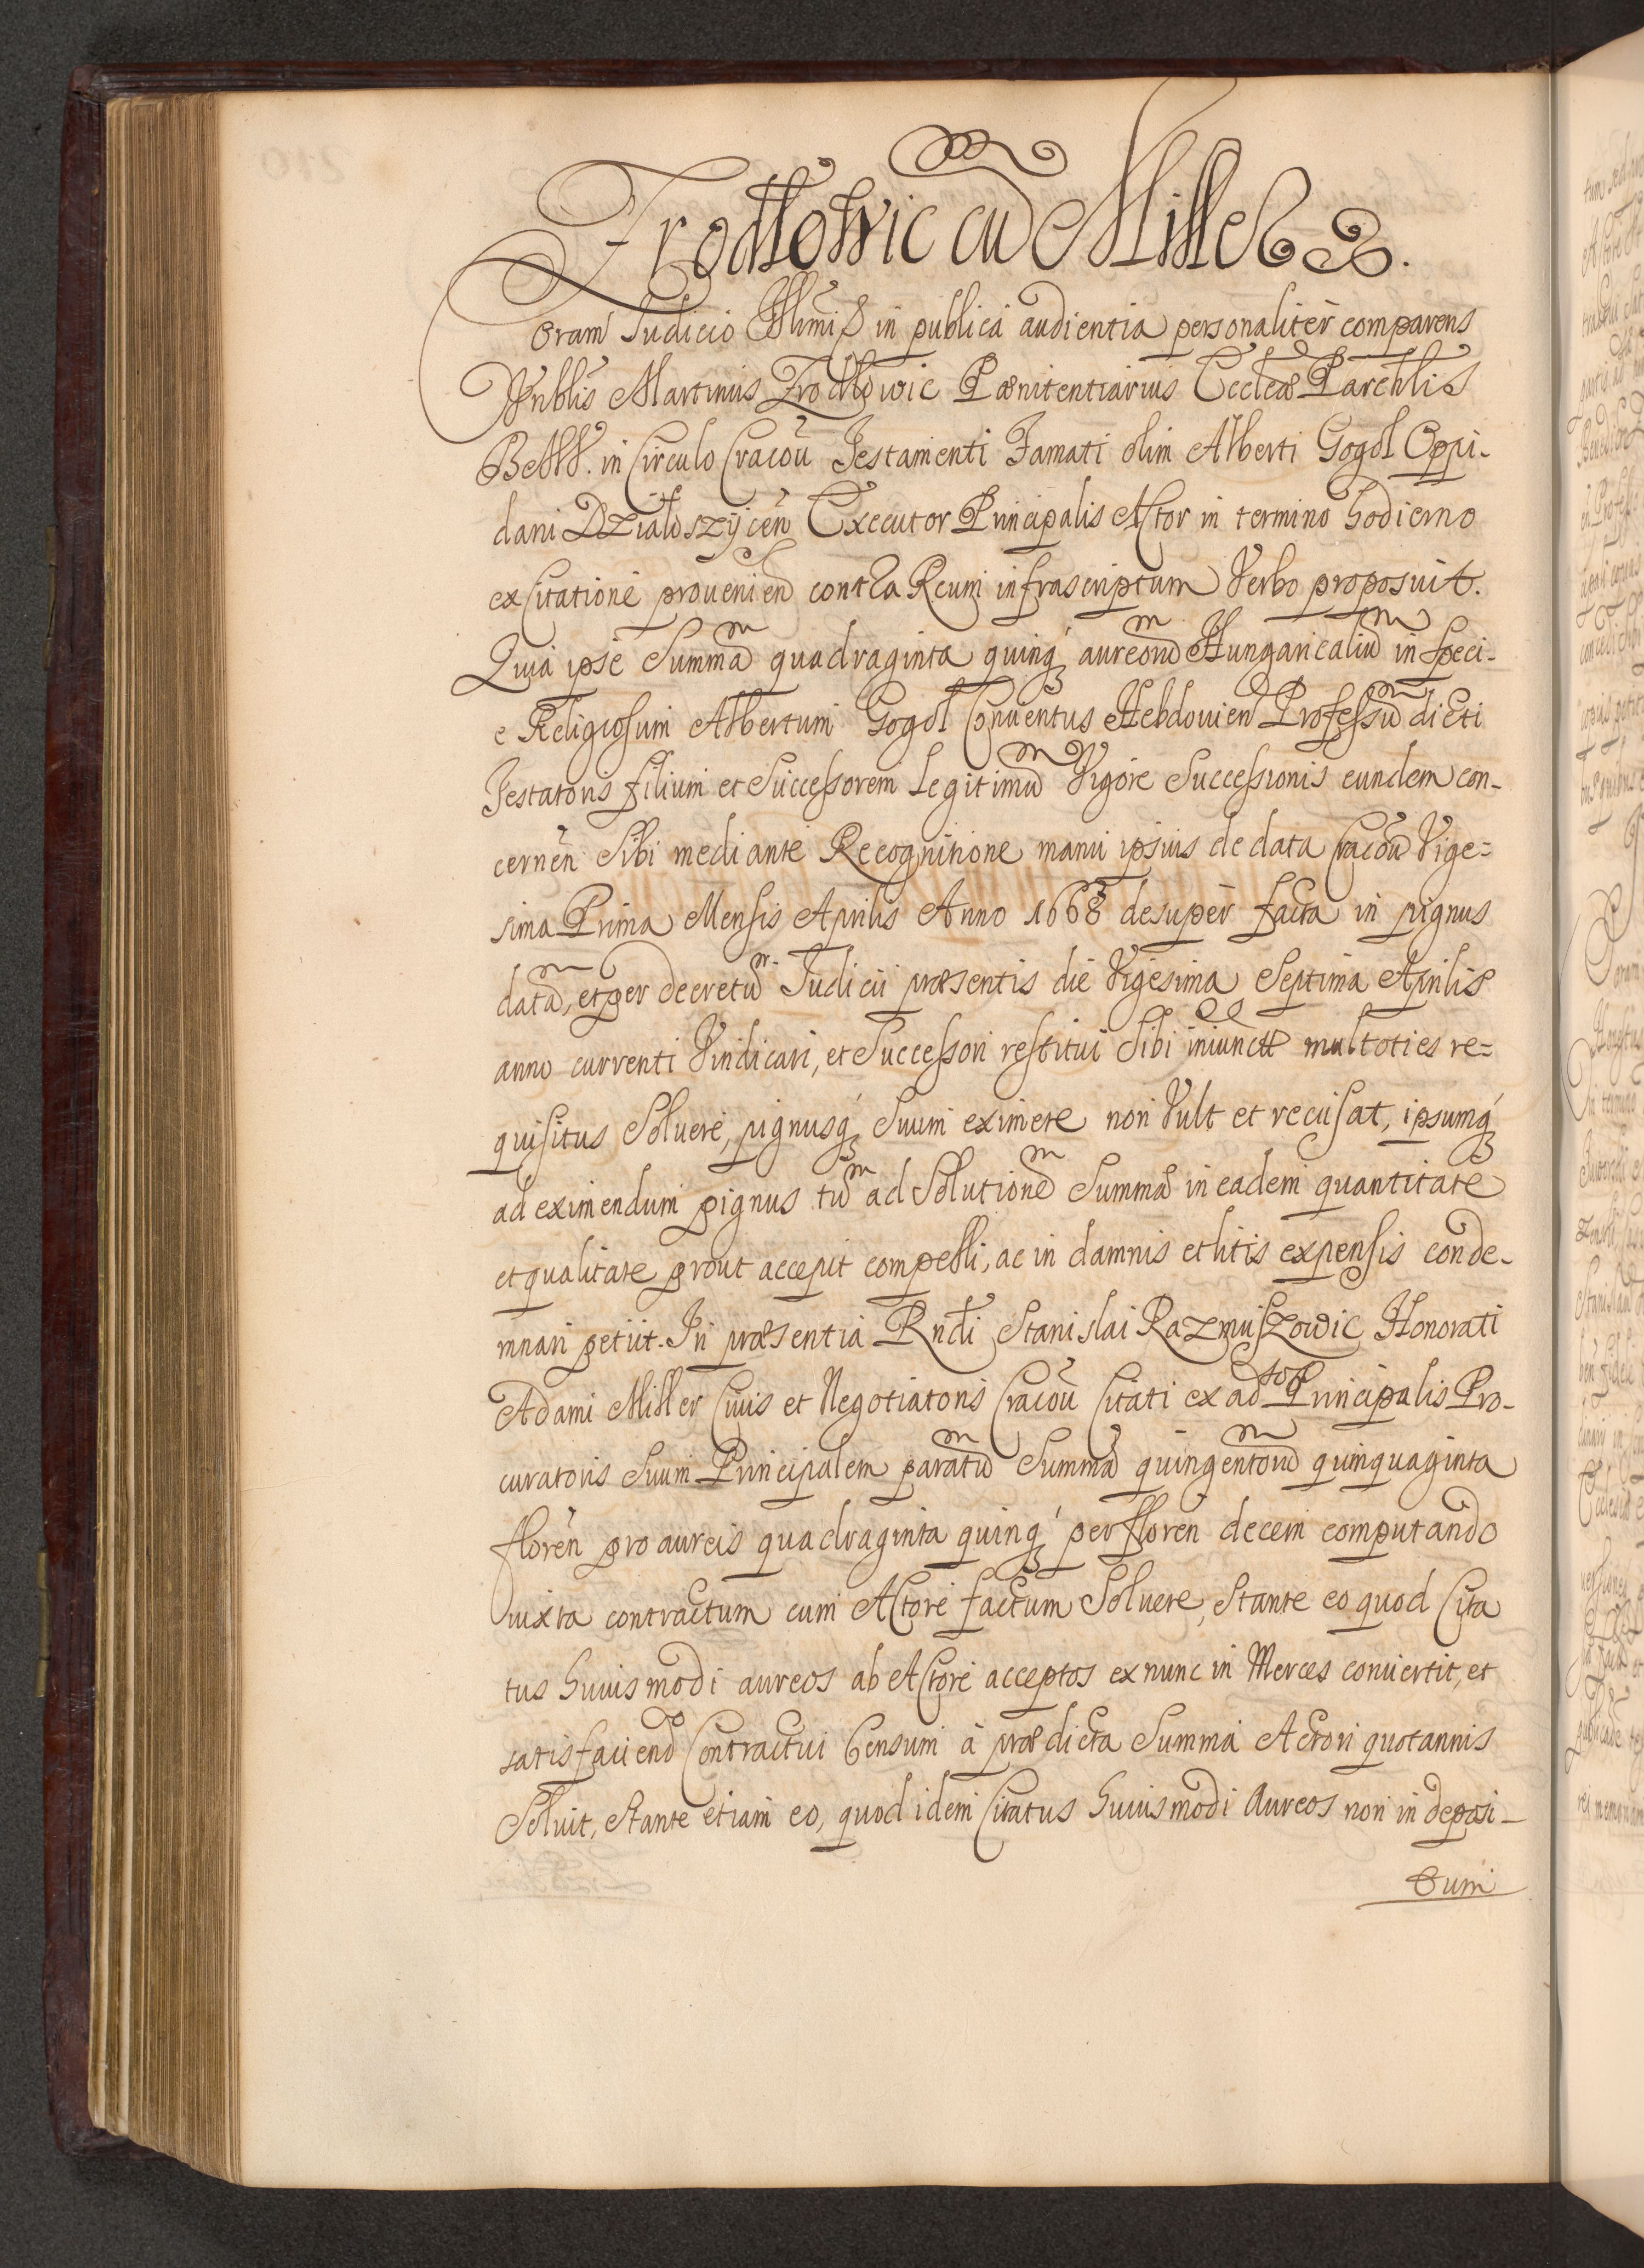 Frodlowic cu Miller.
Coram Iudicio Illmi D in publica audientia personaliter comparens
Vnblis Martinus Frodlowic Pænitentiarius Eccleæ Parchlis
B. in Circulo Cracou Testamenti Famati olim Alberti Gogol Oppi-
dani Dzialoszÿcen Executor Principalis Actor in termino hodierno
ex Citatione prouenien contra Reum infrascriptum Verbo proposuit.
Quia ipse Summa quadraginta quinq aureoru Hungaricaliu in speci-
e Religiosum Albertum Gogol Conuentus Hebdouien Professu dicti
Testatoris filium et Successorem Legitimu Vigore Successionis eundem con-
cernen Sibi mediante Recognitione manu ipsius de data Cracou Vige=
sima Prima Mensis Aprilis Anno 1668 desuper facta in pignus
data, et per decretu Iudicii præsentis die Vigesima Septima Aprilis
anno currenti Vindicari, et Successori restitui Sibi iniunctæ multoties re=
quisitus Soluere, pignusq Suum eximere non Vult et recusat, ipsumq
ad eximendum pignus tu ad Solutione Summæ in eadem quantitate
et qualitate prout accepit compelli, ac in damnis et litis expensis conde-
mnari petiit. In præsentia Rndi Stanislai Razmuszowic Honorati
Adami Miller Ciuis et Negotiatoris Cracou Citati ex adto Principalis Pro-
curatoris Suum Principalem paratu Summa quingentoru quinquaginta
floren pro aureis quadraginta quinq per floren decem computando
iuxta contractum cum Actore factum Soluere, Stante eo quod Cita
tus huiusmodi aureos ab Actore acceptos ex nunc in Merces conuertit, et
satisfaciend Contractui Censum à prædicta Summa Actori quotannis
Soluit, Stante etiam eo, quod idem Citatus huiusmodi Aureos non in deposi-
tum